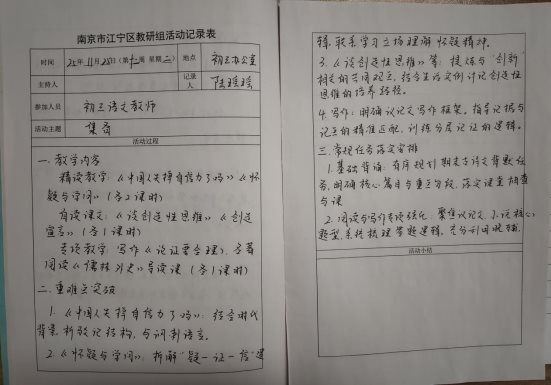 南京市江宁区教研组活动记录表
时间 25年11月25日(第十二周 星期二) 地点 初三办公室
主持人 记录人 陆瑶瑶
参加人员 初三语文教师
活动主题 集备
活动过程
一、教学内容
精读教学:《中国人失掉自信力了吗》《怀
疑与学问》(各2课时)
自读课文:《谈创造性思维》《创造
宣言》(各1课时)
专项教学:写作《论证要合理》、名著
阅读《儒林外史》导读课(各1课时)
二、重难点突破
1.《中国人失掉自信力了吗》:结合时代
背景,析驳论结构,与词刺语言。
2.《怀疑与学问》:拆解"疑—证—信"逻
辑,联系学习立场理解怀疑精神。
3.《谈创造性思维》等:提炼与"创新"
相关的共同观点,结合生活实例讨论创造性
思维的培养路径。
4.写作:明确议论文写作框架,指导论据与
论点的精准匹配,训练分层论证的逻辑。
三、常规任务落实安排
1.基础背诵:有序规划期末古诗文背默任
务,明确核心篇目与重点字段,落实课堂抽查
与课
2.阅读与写作专项强化:聚焦议论文、小说核心
题型,系统梳理答题逻辑,充分利用晚辅。
活动小结